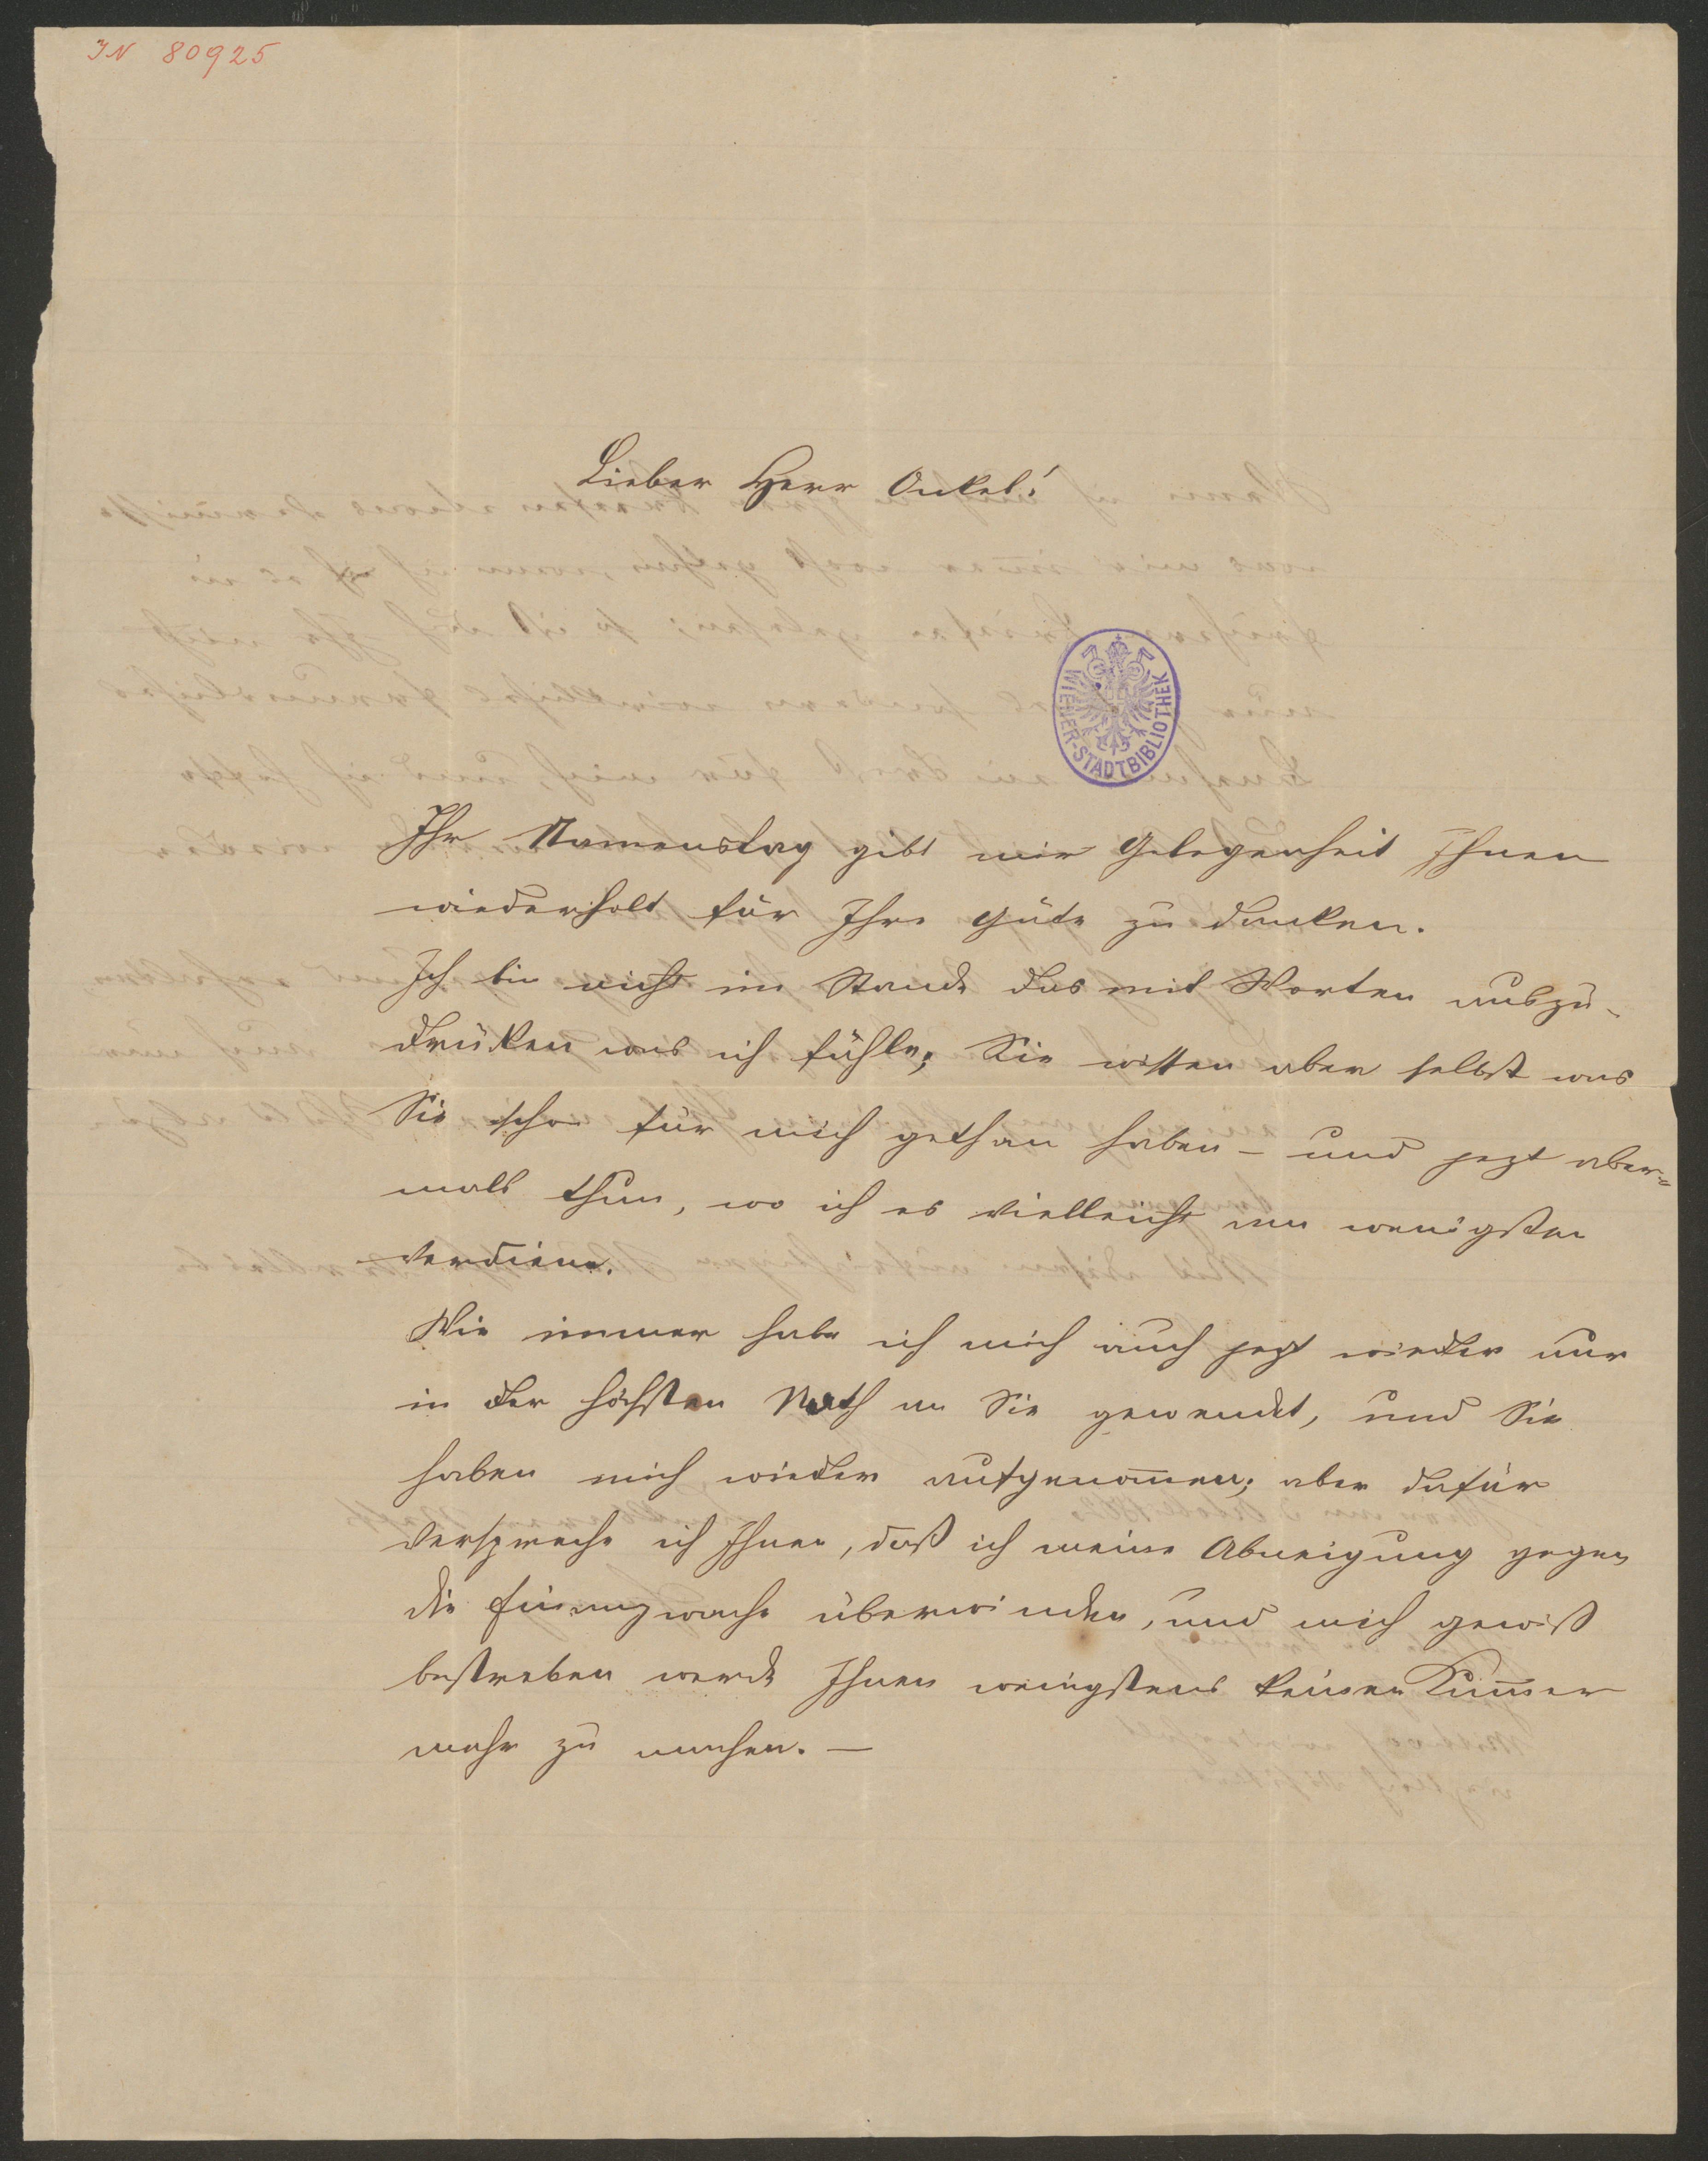 IN 80925
Lieber Herr Onkel!
WIENER-STADTBIBLIOTHEK
Ihr Namenstag gibt mir Gelegenheit Ihnen
wiederholt für Ihre Güte zu danken.
Ich bin nicht im Stande das mit Worten auszu-
drüken was ich fühle; Sie wissen aber selbst was
Sie schon für mich gethan haben – und jezt aber=
mals thun, wo ich es vielleicht am wenigsten
verdiene.
Wie immer habe ich mich auch jezt wieder nur
in der höchsten Noth an Sie gewendet, und Sie
haben mich wieder aufgenom̄en; aber dafür
verspreche ich Ihnen, daß ich meine Abneigung gegen
die Finanzwache überwinden, und mich gewiß
bestreben werde Ihnen wenigstens keinen Kum̄er
mehr zu machen. —